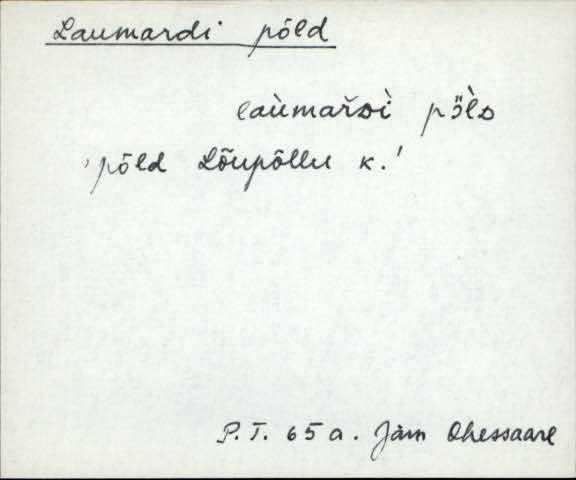 Laumardi põld
laùmařᴅì pö̀lᴅ
'põld Lõupõllu k.'
P. T. 65 a. Jäm Ohessaare